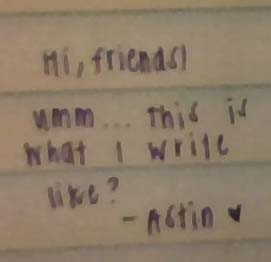 Hi, friends!
umm... this is
what I write
like?
- Astin ♥